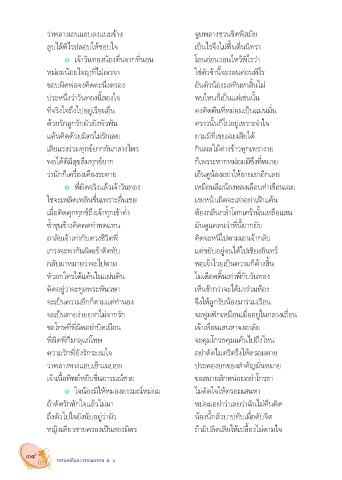 ว่าพลางเอนแอบลงแนบข้าง จูบพลางชวนชิดพิสมัย
ลูบไล้พิไรปลอบให้ชอบใจ เป็นไรจึงไม่ฟื้นตื่นนิทรา
๏ เจ้าวันทองน้องตื่นจากที่นอน โอนอ่อนวอนไหว้พิไรว่า
หม่อมน้อยใจฤๅที่ไม่เจรจา ใช่ตัวข้านี้จะงอนค่อนพิไร
ชอบผิดพ่อจงคิดคะนึงตรอง อันตัวน้องมลทินหาสิ้นไม่
ประหนึ่งว่าวันทองนี้สองใจ พบไหนก็เป็นแต่เช่นนั้น
ที่จริงใจถึงไปอยู่เรือนอื่น คงคิดคืนที่หม่อมเป็นแม่นมั่น
ด้วยรักลูกรักผัวยังพัวพัน คราวนั้นก็ไปอยู่เพราะจำใจ
แค้นคิดด้วยมิตรไม่รักเลย ยามมีที่เชยเฉยเสียได้
เสียแรงร่วมทุกข์ยากกันกลางไพร กินผลไม้ต่างข้าวทุกเพรางาย
พอได้ดีมีสุขลืมทุกข์ยาก ก็เพราะหากหม่อมมีซึ่งที่หมาย
ว่านักก็เครื่องเคืองระคาย เอ็นดูน้องอย่าให้อายเขาอีกเลย
๏ พี่ผิดจริงแล้วเจ้าวันทอง เหมือนลืมน้องหลงเลือนทำเชือนเฉย
ใช่จะเพลิดเพลินชื่นเพราะอื่นเชย เงยหน้าเถิดจะเล่าอย่าเฝ้าแค้น
เมื่อติดคุกทุกข์ถึงเจ้าทุกเช้าค่ำ ต้องกลืนกล้ำโศกเศร้านั้นเหลือแสน
ซ้ำขุนช้างคิดคดทำทดแทน มันดูแคลนว่าพี่นี้ยากยับ
อาลัยเจ้าเท่ากับดวงชีวิตพี่ คิดจะหนีไปตามเอาเจ้ากลับ
เกรงจะพากันผิดเข้าติดทับ แต่ขยับอยู่จนได้ไปเชียงอินทร์
กลับมาหมายว่าจะไปตาม พอเจ้าไวยเป็นความก็ค้างสิ้น
หัวอกใครได้แค้นในแผ่นดิน ไม่เดือดดิ้นเท่าพี่กับวันทอง
คิดอยู่ว่าจะทูลพระพันวษา เห็นช้ากว่าจะได้มาร่วมห้อง
จะเป็นความอีกก็ตามแต่ทำนอง จึงให้ลูกรับน้องมาร่วมเรือน
จะเป็นตายง่ายยากไม่จากรัก จะฟูมฟักเหมือนเมื่ออยู่ในกลางเถื่อน
ขอโทษที่พี่ผิดอย่าบิดเบือน เจ้าเพื่อนเสนหาจงอาลัย
พี่ผิดพี่ก็มาลุแก่โทษ จะคุมโกรธคุมแค้นไปถึงไหน
ความรักพี่ยังรักระงมใจ อย่าตัดไมตรีตรึงให้ตรอมตาย
ว่าพลางทางแอบเข้าแนบอก ประคองยกของสำคัญมั่นหมาย
เจ้าเนื้อทิพย์หยิบชื่นอารมณ์ชาย ขอสบายสักหน่อยอย่าโกรธา
๏ ใจน้องมิให้หมองอารมณ์หม่อม ไม่ตัดใจให้ตรอมเสนหา
ถ้าตัดรักหักใจแล้วไม่มา หม่อมอย่าว่าเลยว่าฉันไม่คืนคิด
ถึงตัวไปใจยังนับอยู่ว่าผัว น้องนี้กลัวบาปทับเมื่อดับจิต
หญิงเดียวชายครองเป็นสองมิตร ถ้ามิปลิดเสียให้เปลื้องไม่ตามใจ
๓๔
วรรณคดีและวรรณกรรม ม. ๖